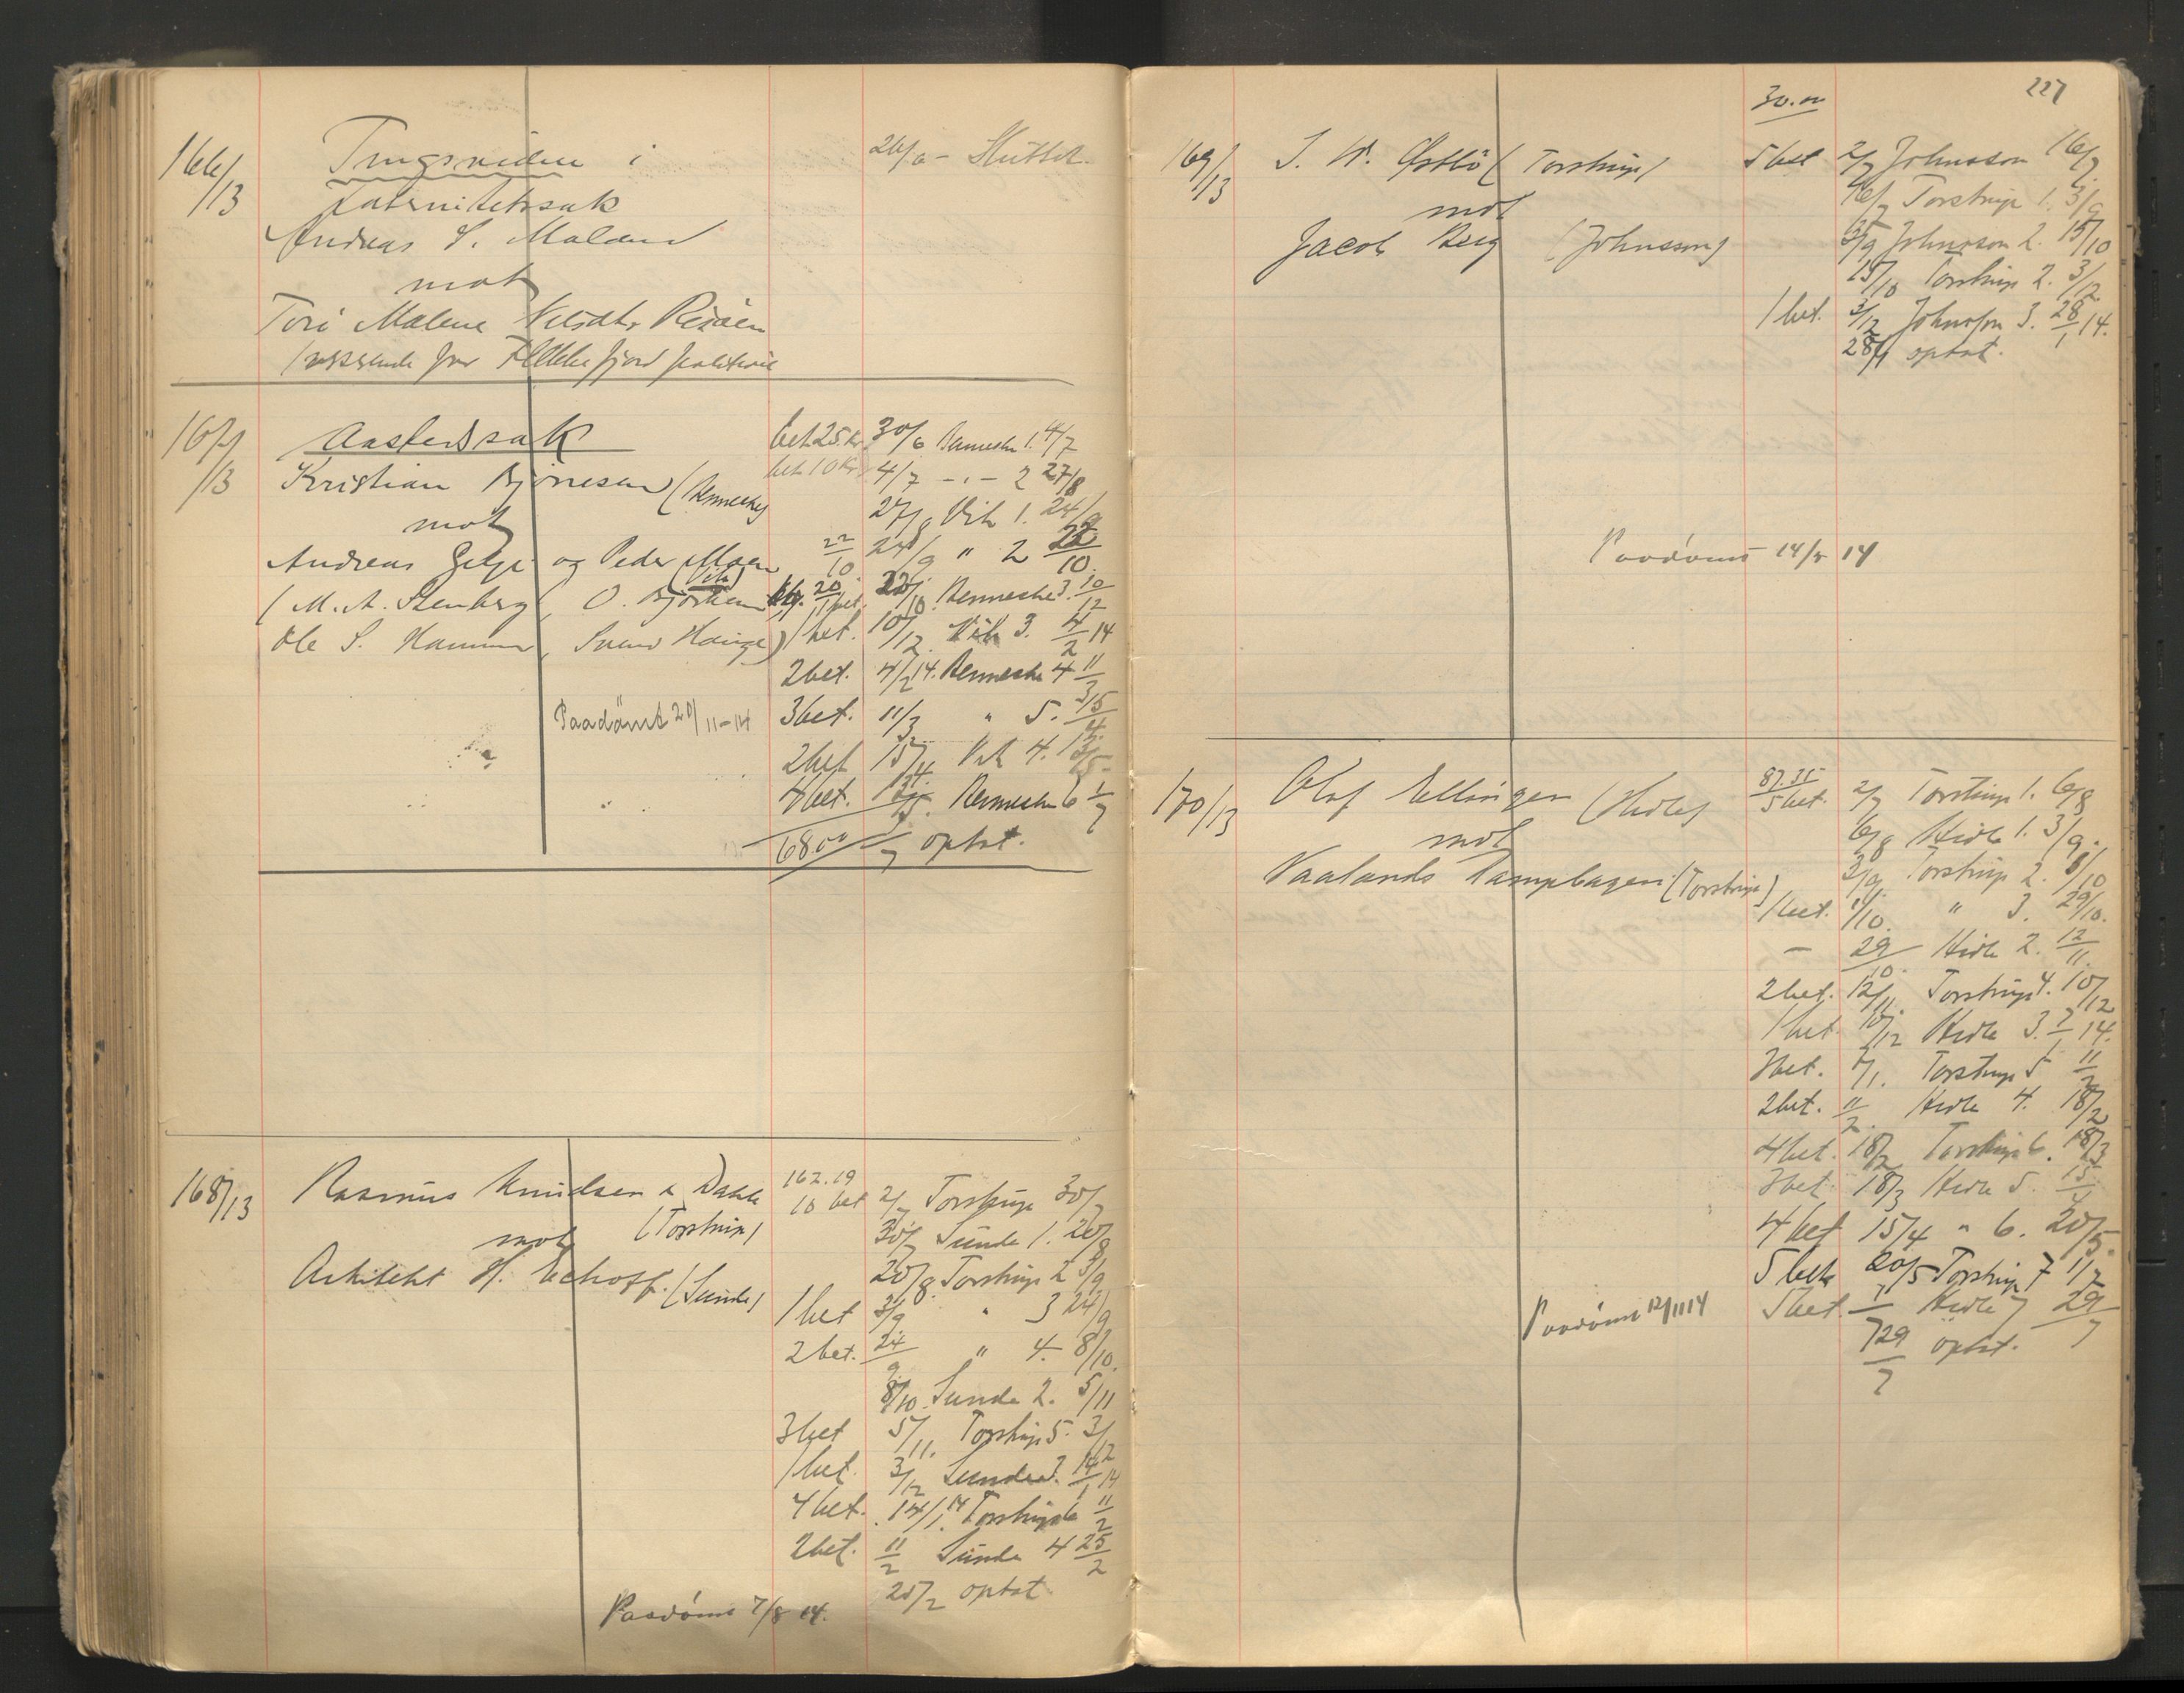 166/13 Tingsvidne i 26/6 - Sluttet.
Paternitetssak
Andreas S. Maland
mot
Tori Malene
167/13 Aastedssak bet 25 kr 30/6 Renneske 1. 4/7
Kristian Bjørnesen (Renneske) bet 10 kr 4/7 - " - 2 27/8
mot 27/8 Vik 1. 24/9
Andreas Gilje og Peder Moen (Vik) 22/10 24/9 " 2 22/10
(M. A. Stenberg, O. Bjørheim 22/10 Renneske 3. 10/12
Ole S. Hammer, Svend Hauge) 1 bet. 10/12 Vik 3. 4/2 14
2 bet. 4/2 14. Renneske 4 11/3
Paadømt 20/11-14 3 bet. 11/3 " 5. 15/4
2 bet 15/4 Vik 4. 13/5
4 bet. 13/5. Renneske 6 1/7
68.00 1/7 optat.
168/13 Rasmus Knudsen & Dahle 162.19
(Torstrup) 10 bet 2/7 Torstrup 30/7
mot 30/7 Sunde 1. 20/8
Arkitekt H. Eckhoff. (Sunde) 20/8 Torstrup 2 3/9
1 bet 3/9 " 3 24/9
2 bet. 24/9 " 4. 8/10.
8/10. Sunde 2. 5/11
3 bet 5/11. Torstrup 5. 3/12
1 bet. 3/12 Sunde 3. 14/1 14
4 bet. 14/1 14 Torstrup 6 11/2
2 bet. 11/2 Sunde 4 25/2
25/2 optat
Paadømt 7/8 14.
227
30.00
169/13 (Torstrup) 5 bet 2/7 Johnsson 16/7
mot 16/7 Torstrup 1. 3/9
Jacob Berg (Johnsson) 3/9 Johnsson 2. 15/10
15/10 Torstrup 2. 3/12
1 bet. 3/12 Johnsson 3. 28/1 14.
28/1 optat.
Paadømt 14/5 14
170/13 Olaf Ellingsen (Hidle) 87.35
5 bet. 2/7 Torstrup 1. 6/8
mot 6/8 Hidle 1. 3/9.
Vaalands Dampbageri (Torstrup) 3/9 Torstrup 2. 8/10
1 bet. 8/10. " 3. 29/10.
- 29/10. Hidle 2. 12/11.
2 bet. 12/11. Torstrup 4. 10/12
1 bet 10/12 Hidle 3. 7/1 14.
3 bet. 7/1. Torstrup 5 11/2
2 bet. 11/2. Hidle 4. 18/2
4 bet. 18/2 Torstrup 6. 18/3
3 bet. 18/3 Hidle 5. 15/4
4 bet 15/4 " 6. 20/5.
5 bet 20/5 Torstrup 7 1/7
Paadømt 12/11 14 5 bet. 1/7 Hidle 7 29/7
29/7 optat.